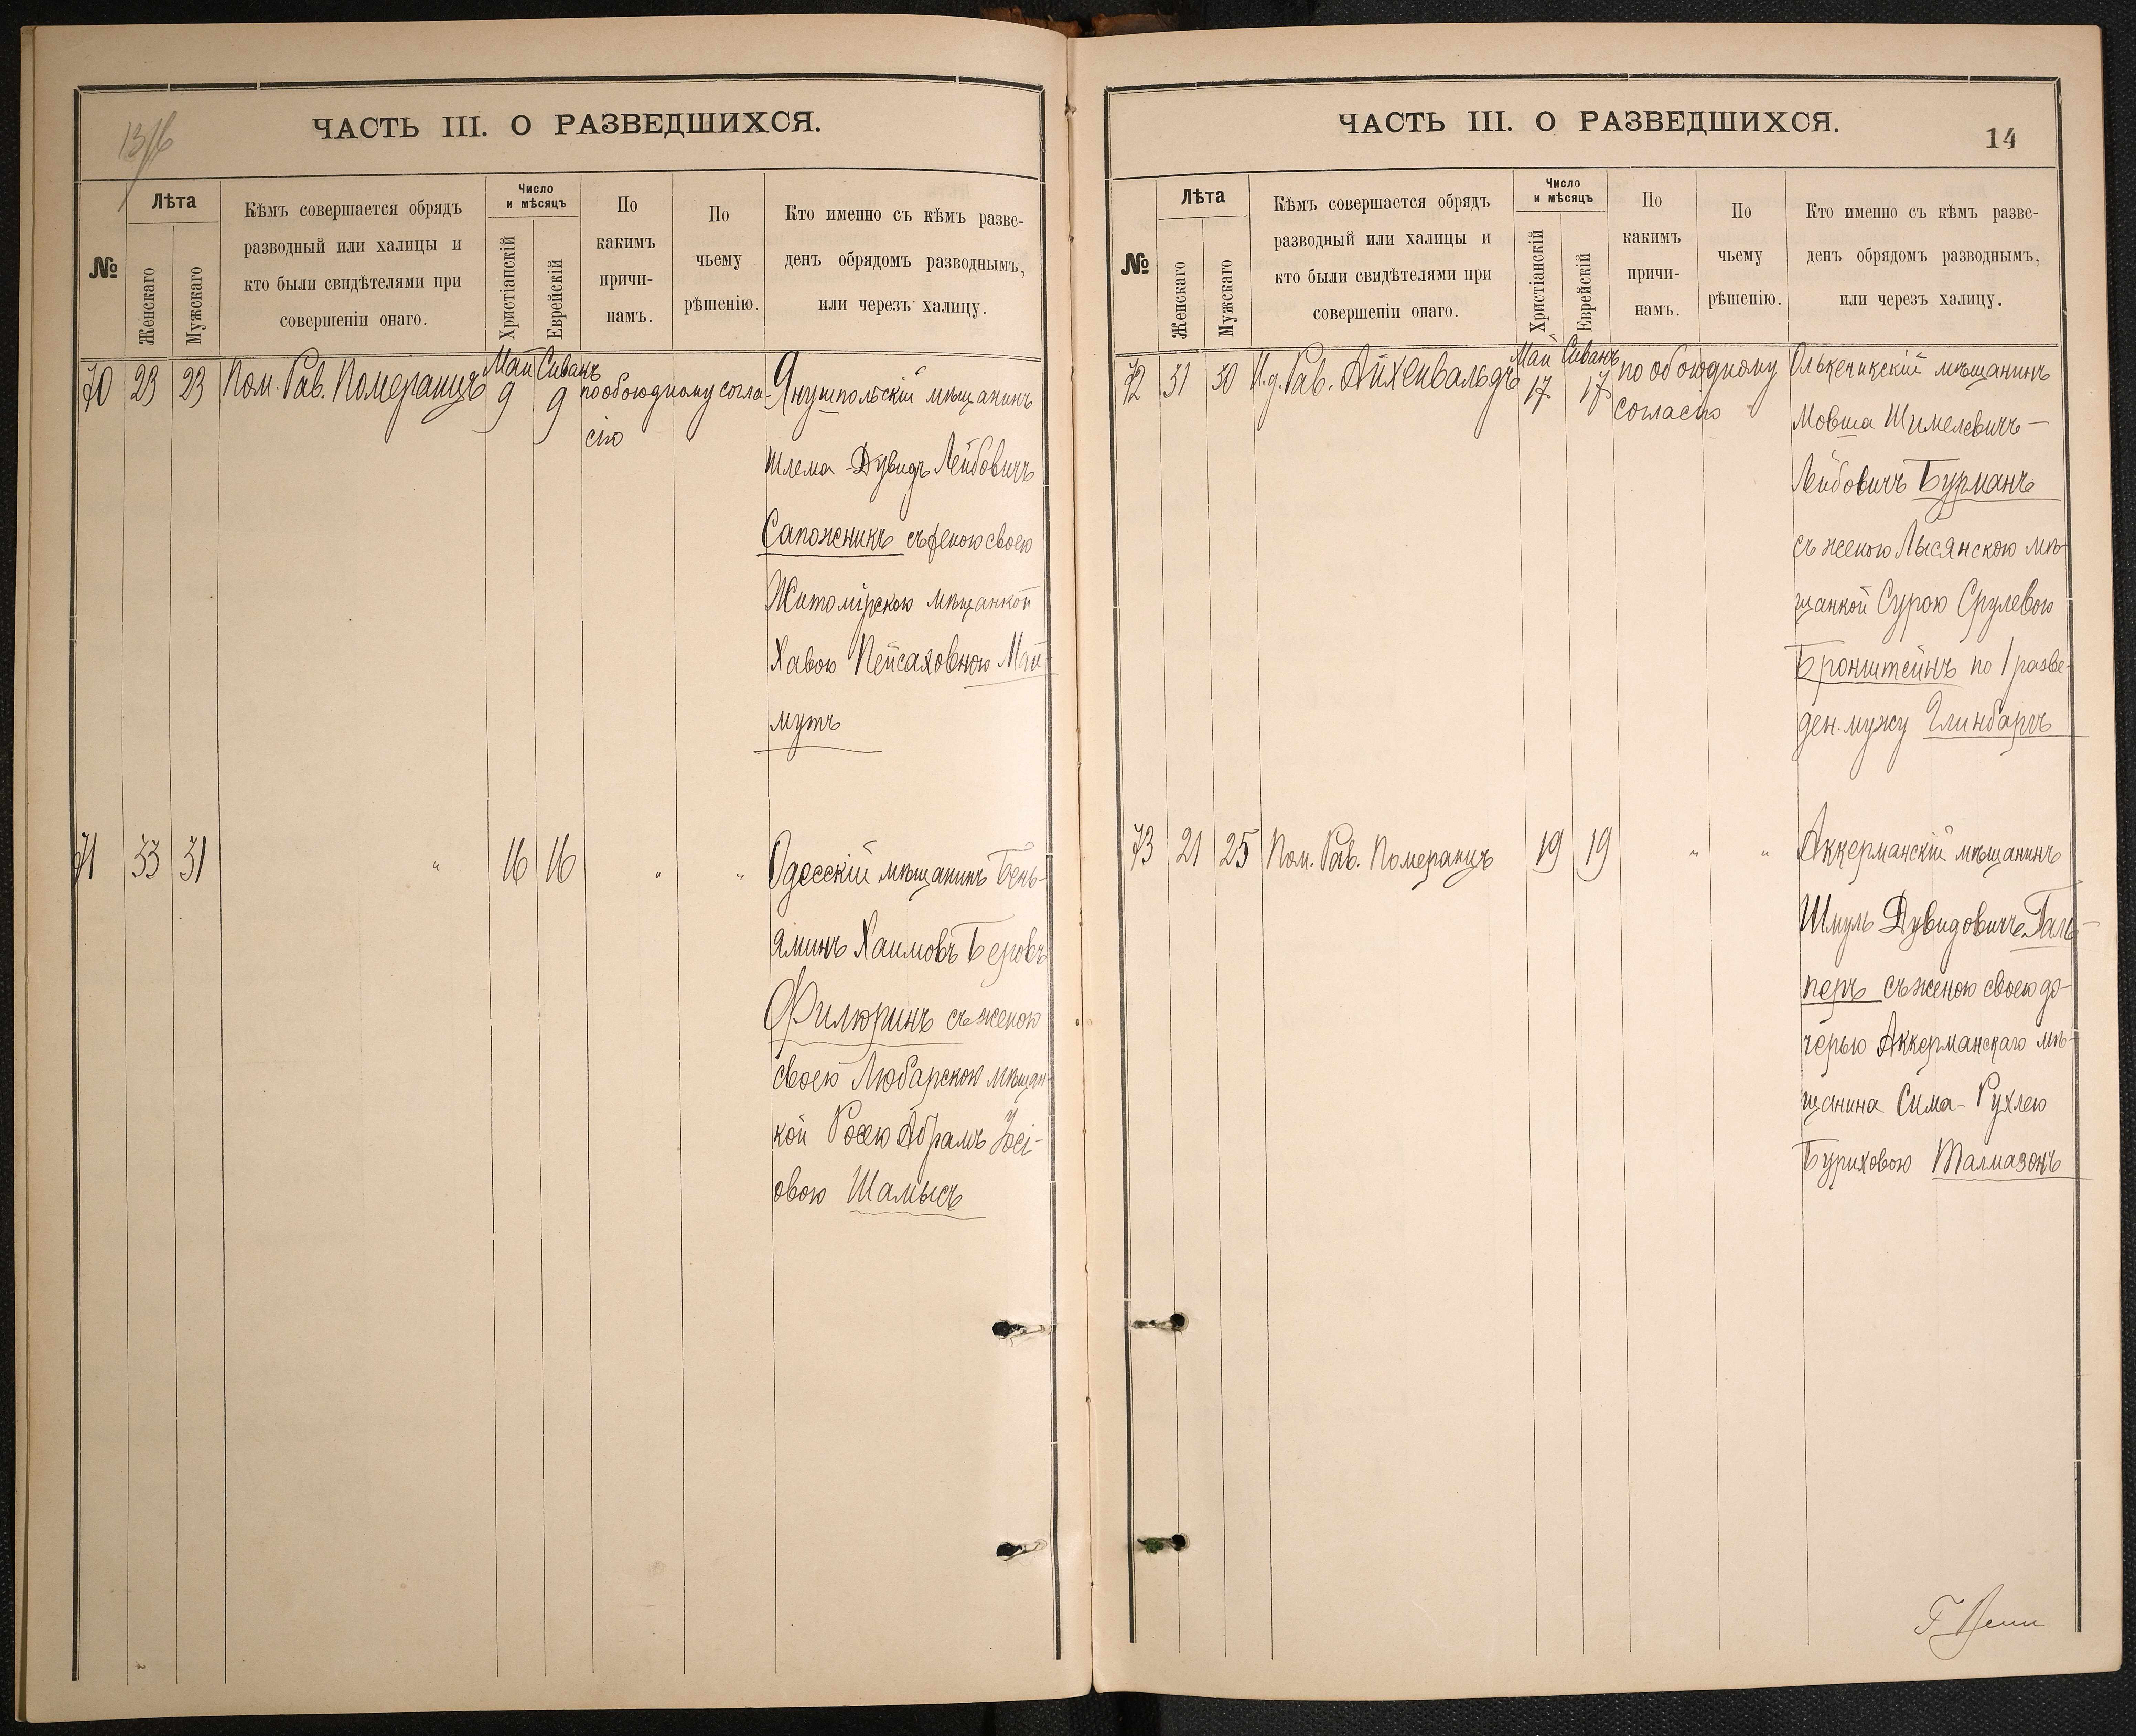 13/б
ЧАСТЬ III. О РАЗВЕДШИХСЯ.
№
Лѣта
Женскаго
Мужскаго
Кѣмъ совершается обрядъ
разводный или халицы и
кто были свидѣтелями при
совершеніи онаго.
Число
и мѣсяцъ
Христіанскій
Еврейскій
По
какимъ
причи-
намъ.
По
чьему
рѣшенію.
Кто именно съ кѣмъ разве-
денъ обрядомъ разводнымъ,
или черезъ халицу.
Май Сиванъ
70 23 23 Пом. Рав. Померанцъ 9 9 по обоюдному согла- Янушпольскій мѣщанинъ
сію
Шлема-Дувидъ Лейбовичъ
Сапожникъ съ женою своею
Житомірскою мѣщанкой
Хавою Пейсаховною Май
мутъ
71 33 31 " 16 16 " " Одесскій мѣщанинъ Бень-
яминъ Хаимовъ Беровъ
Филюринъ съ женою
своею Любарскою мѣщан-
кой Росею Абрамъ Іосі-
овою Шамысъ
ЧАСТЬ III. О РАЗВЕДШИХСЯ.
14
№
Лѣта
Женскаго
Мужскаго
Кѣмъ совершается обрядъ
разводный или халицы и
кто были свидѣтелями при
совершеніи онаго.
Число
и мѣсяцъ
Христіанскій
Еврейскій
По
какимъ
причи-
намъ.
По
чьему
рѣшенію.
Кто именно съ кѣмъ разве-
денъ обрядомъ разводнымъ,
или черезъ халицу.
Май Сиванъ
72 31 30 И.д. Рав. Айхенвальдъ 17 17 по обоюдному Олькеникскій мѣщанинъ
согласію
Мовша Шимелевичъ-
Лейбовичъ Бурманъ
съ женою Лысянскою мѣ-
щанкой Сурою Срулевою
Бронштейнъ по 1 разве-
ден. мужу Глинбаргъ
73 21 25 Пом. Рав. Померанцъ 19 19 " " Аккерманскій мѣщанинъ
Шмуль Дувидовичъ Галь-
перъ съ женою своею до-
черью Аккерманскаго мѣ-
щанина Сима-Рухлею
Буриховою Талмазонъ